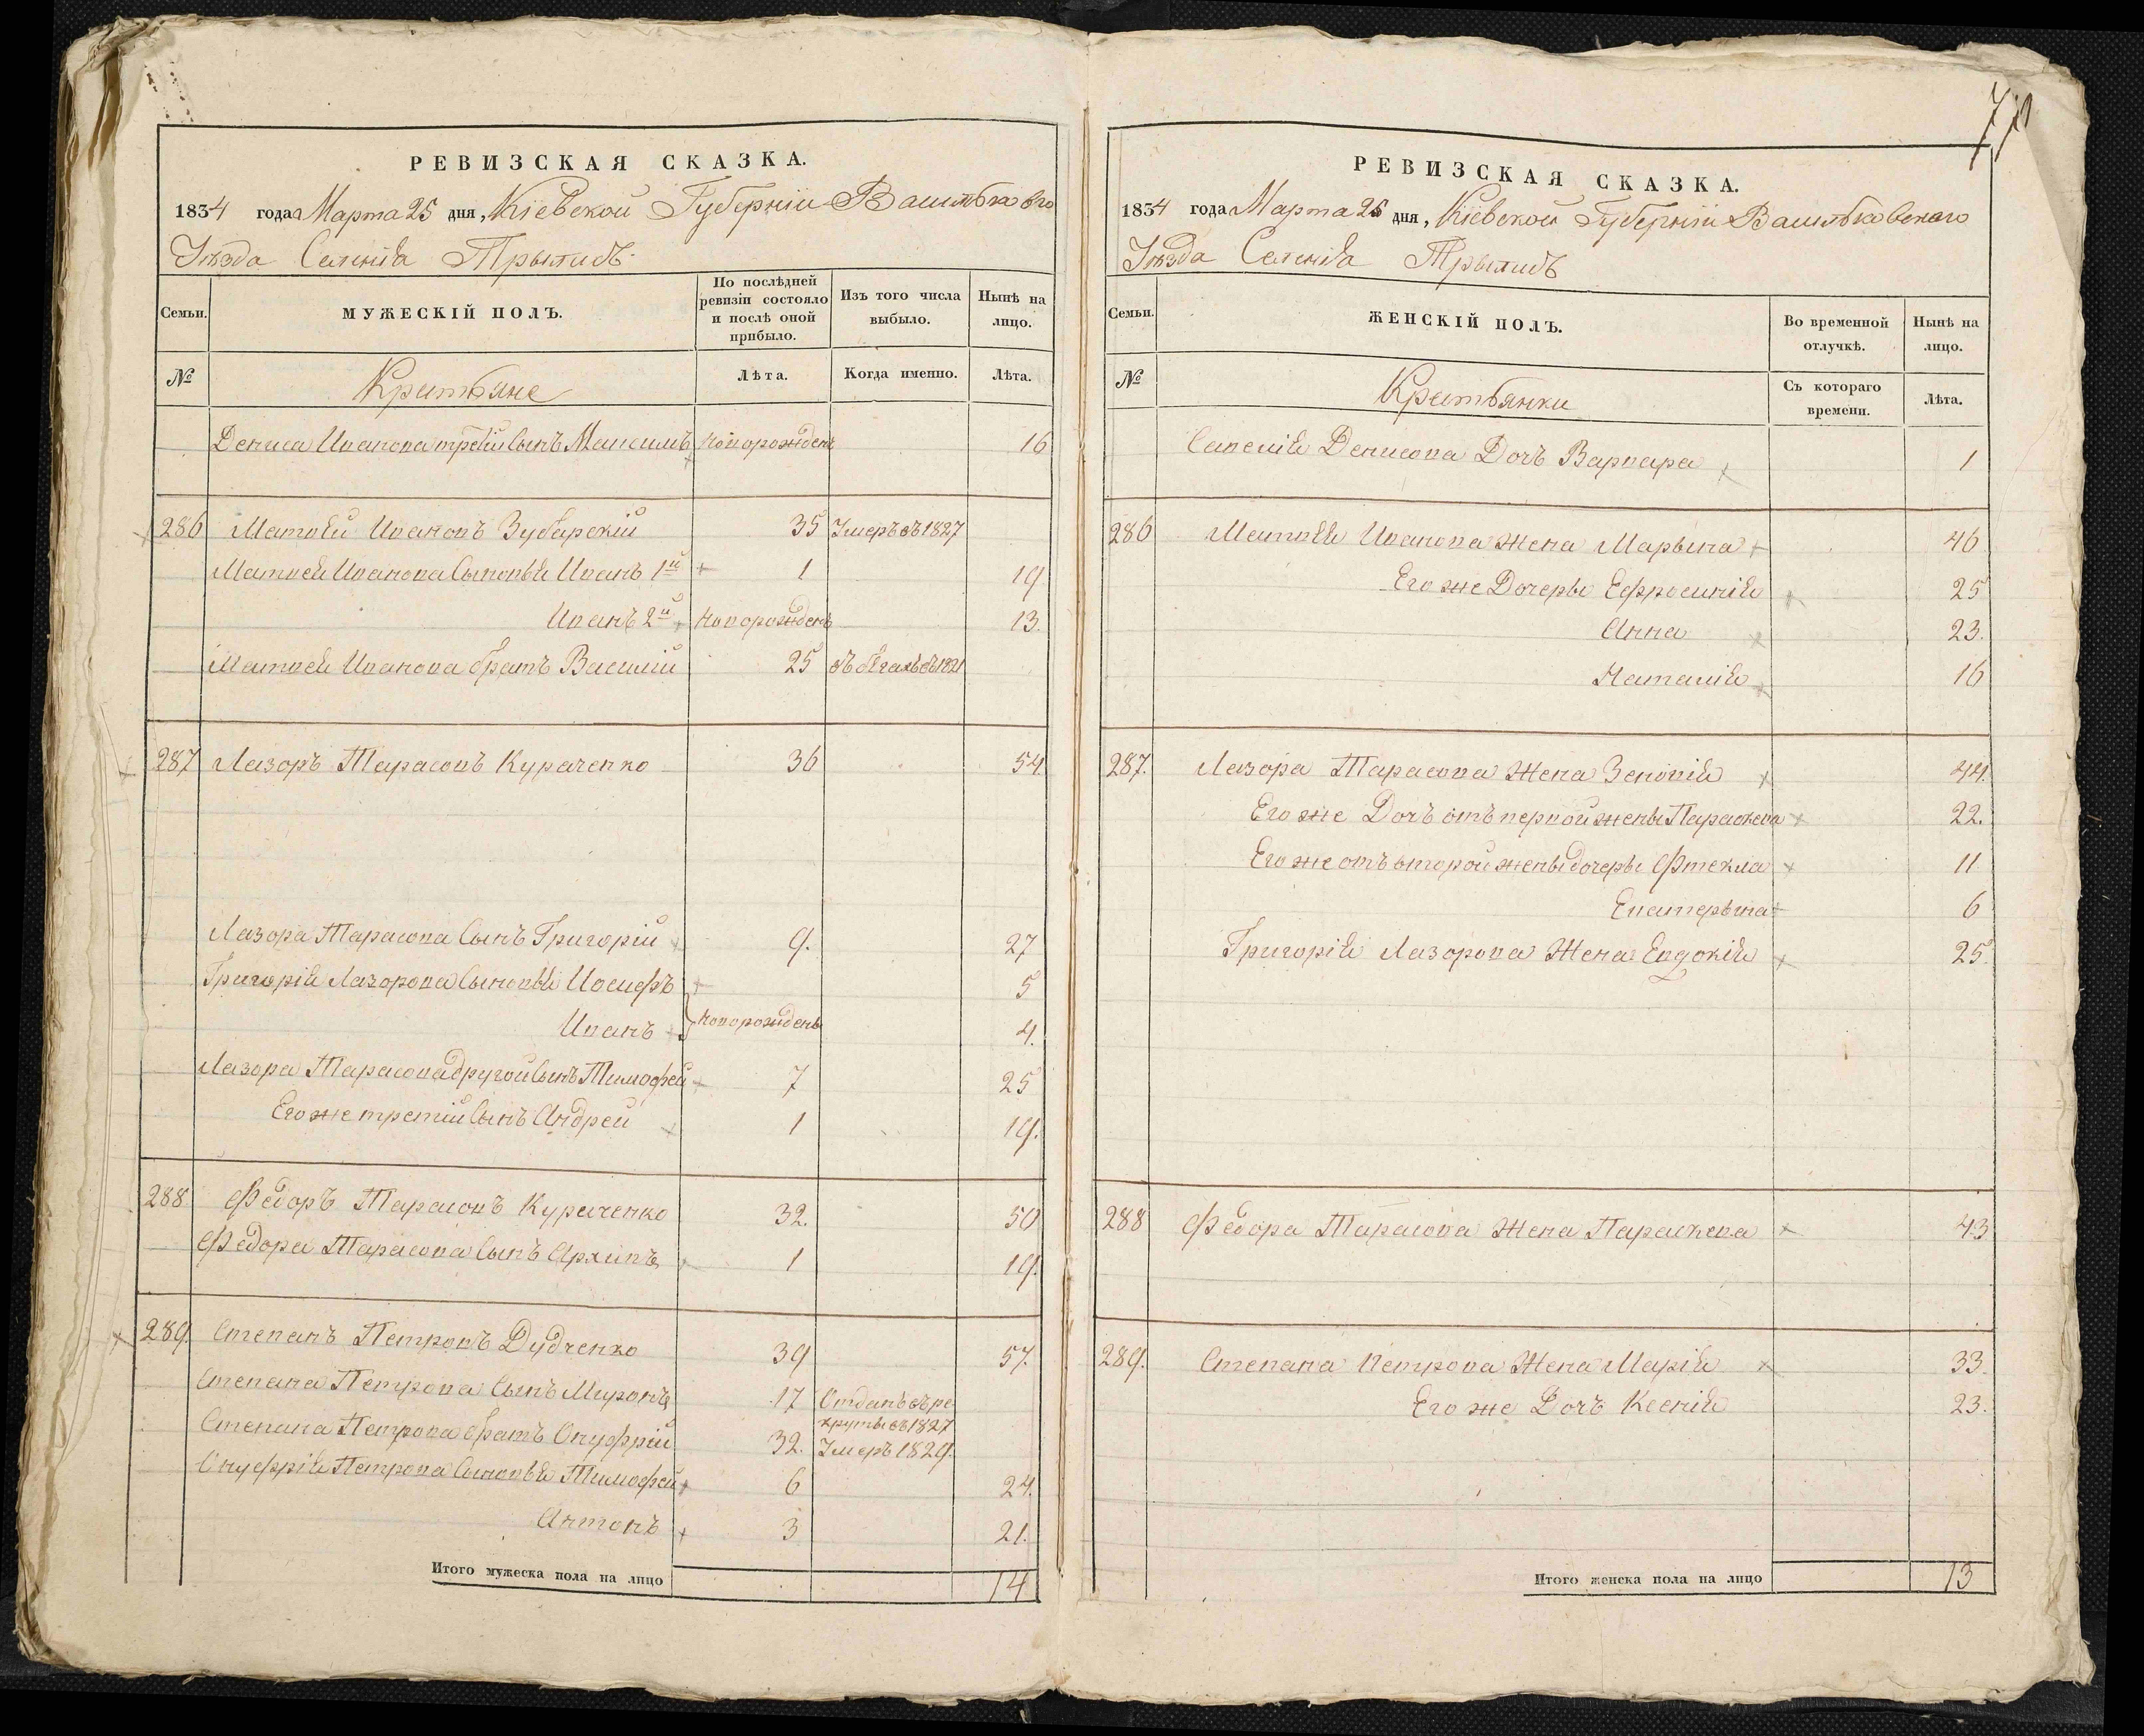 РЕВИЗСКАЯ СКАЗКА.
1834 года Марта 25 дня, Кіевской Губерніи Васильковго
Уѣзда Селенія Трылисъ
Семьи. МУЖЕСКІЙ ПОЛЪ. По послѣдней ревизіи состояло и послѣ оной прибыло. Изъ того числа выбыло. Нынѣ на лицо.
№ Крестьяне Лѣта. Когда именно. Лѣта.
Дениса Иванова третій Сынъ Максимъ новорожденъ 16
286 Матвей Ивановъ Зубарскій 35 Умеръ въ 1827
Матвея Иванова Сыновья Иванъ 1й 1 19
Иванъ 2й новорожденъ 13.
Матвея Иванова братъ Василій 25 въ бѣгахъ съ 1821
287 Лазоръ Тарасовъ Кураченко 36 54
Лазора Тарасова Сынъ Григорій 9. 27
Григорія Лазорова Сыновья Иосифъ 5
Иванъ новорожденъ 4.
Лазора Тарасова другой Сынъ Тимофей 7 25
Его же третій Сынъ Андрей 1 19.
288 Федоръ Тарасовъ Кураченко 32. 50
Федора Тарасова Сынъ Архипъ 1 19.
289. Степанъ Петровъ Дудченко 39 57.
Степана Петрова Сынъ Миронъ 17 Отданъ въ ре
круты въ 1827
Степана Петрова братъ Онуфрій 32. Умеръ 1829.
Онуфрія Петрова Сыновья Тимофей 6 24.
Антонъ 3 21.
Итого мужеска пола на лицо 14
РЕВИЗСКАЯ СКАЗКА.
1834 года Марта 25 дня, Кіевской Губерніи Васильковскаго
Уѣзда Селенія Трылисъ
Семьи. ЖЕНСКІЙ ПОЛЪ. Во временной отлучкѣ. Нынѣ на лицо.
№ Крестьянки Съ котораго времени. Лѣта.
Савелія Денисова Дочь Варвара 1
286 Матвея Иванова жена Марьяна 46
Его же Дочеры Ефросинія 25
Анна 23.
Наталія 16
287. Лазора Тарасова Жена Зеновія 44.
Его же Дочъ отъ первой жены Параскева 22.
Его же отъ второй жены дочеры Фтекла 11
Екатерына 6
Григорія Лазорова Жена Евдокія 25.
288 Федора Тарасова Жена Параскева 43
289. Степана Петрова Жена Марія 33.
Его же Дочъ Ксенія 23.
Итого женска пола на лицо 13